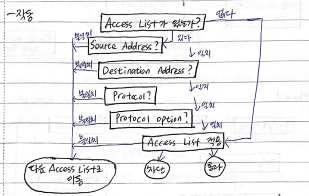 - 작동
Access List가 있는가?
없다
있다
불일치
Source Address?
일치
불일치
Destination Address?
일치
불일치
Protocol?
일치
불일치
Protocol option?
일치
불일치
Access List 적용
다음 Access List로
이동
차단
통과